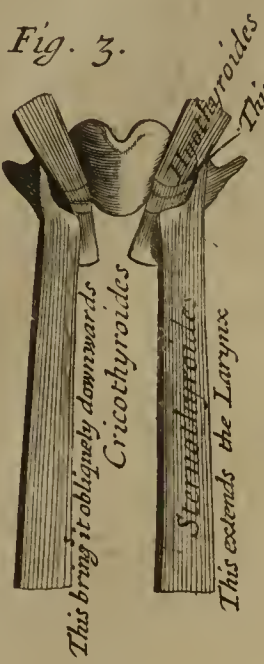 Fig. 3.
Hyothyroides
This
This bring it obliquely downwards
Cricothyroides
Sternothyroides
This extends the Larynx